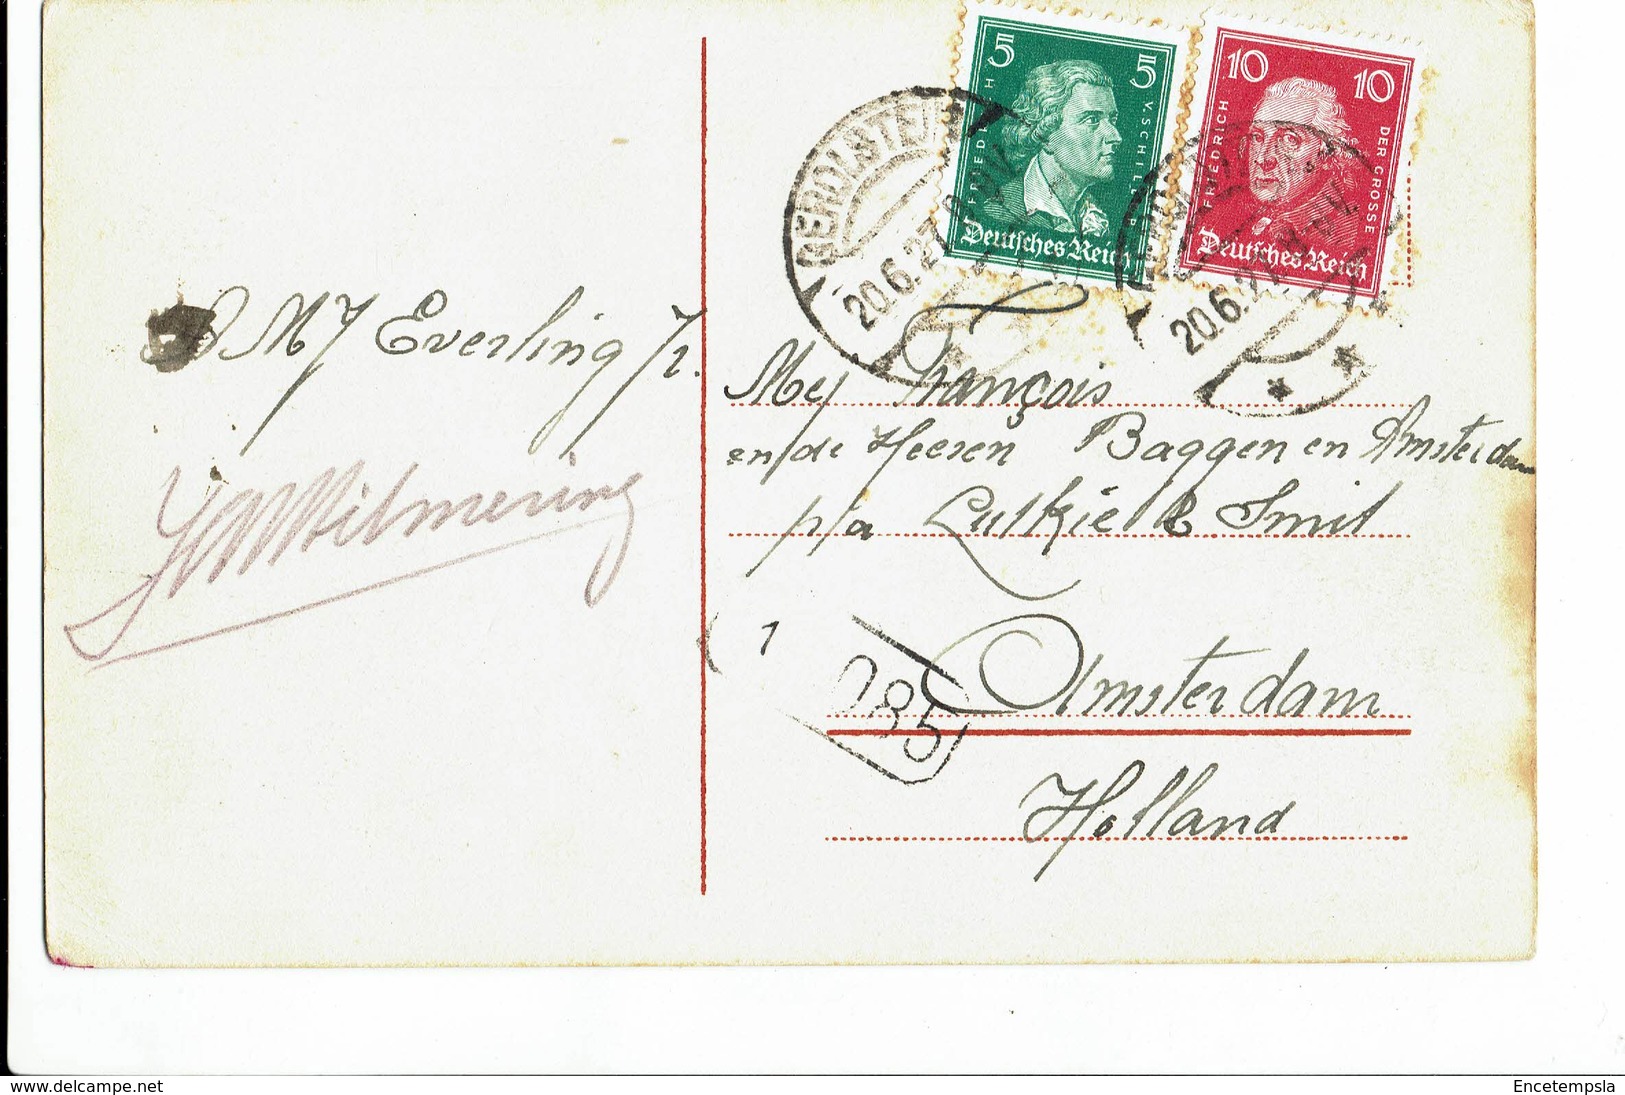 5 5
FRIEDRICH V. SCHILLER
Deutsches Reich
10 10
FRIEDRICH DER GROSSE
Deutsches Reich
GEROLSTEIN
20.6.27
20.6.27
M J Everling Jr.
Wilmering
Mej François
en de Heeren Baggen en Amsterdam
p/a Lutkie & Smit
Amsterdam
Holland
1
085
www.delcampe.net
Encetempsla